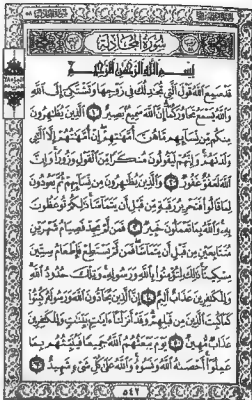 سُورَةُ المُجَادلة
بِسْمِ اللَّهِ الرَّحْمَٰنِ الرَّحِيمِ
قَدْ سَمِعَ اللَّهُ قَوْلَ الَّتِي تُجَٰدِلُكَ فِي زَوْجِهَا وَتَشْتَكِي إِلَى اللَّهِ
وَاللَّهُ يَسْمَعُ تَحَاوُرَكُمَا إِنَّ اللَّهَ سَمِيعٌ بَصِيرٌ ١ الَّذِينَ يُظَٰهِرُونَ
مِنكُم مِّن نِّسَائِهِم مَّا هُنَّ أُمَّهَٰتِهِمْ إِنْ أُمَّهَٰتُهُمْ إِلَّا الَّٰٓـِٔي
وَلَدْنَهُمْ وَإِنَّهُمْ لَيَقُولُونَ مُنكَرًا مِّنَ الْقَوْلِ وَزُورًا وَإِنَّ
اللَّهَ لَعَفُوٌّ غَفُورٌ ٢ وَالَّذِينَ يُظَٰهِرُونَ مِن نِّسَائِهِمْ ثُمَّ يَعُودُونَ
لِمَا قَالُوا فَتَحْرِيرُ رَقَبَةٍ مِّن قَبْلِ أَن يَتَمَاسَّا ذَٰلِكُمْ تُوعَظُونَ
بِهِ وَاللَّهُ بِمَا تَعْمَلُونَ خَبِيرٌ ٣ فَمَن لَّمْ يَجِدْ فَصِيَامُ شَهْرَيْنِ
مُتَتَابِعَيْنِ مِن قَبْلِ أَن يَتَمَاسَّا فَمَن لَّمْ يَسْتَطِعْ فَإِطْعَامُ سِتِّينَ
مِسْكِينًا ذَٰلِكَ لِتُؤْمِنُوا بِاللَّهِ وَرَسُولِهِ وَتِلْكَ حُدُودُ اللَّهِ
وَلِلْكَٰفِرِينَ عَذَابٌ أَلِيمٌ ٤ إِنَّ الَّذِينَ يُحَادُّونَ اللَّهَ وَرَسُولَهُ كُبِتُوا
كَمَا كُبِتَ الَّذِينَ مِن قَبْلِهِمْ وَقَدْ أَنزَلْنَا ءَايَٰتٍ بَيِّنَٰتٍ وَلِلْكَٰفِرِينَ
عَذَابٌ مُّهِينٌ ٥ يَوْمَ يَبْعَثُهُمُ اللَّهُ جَمِيعًا فَيُنَبِّئُهُم بِمَا
عَمِلُوا أَحْصَىٰهُ اللَّهُ وَنَسُوهُ وَاللَّهُ عَلَىٰ كُلِّ شَيْءٍ شَهِيدٌ ٦
٥٤٢